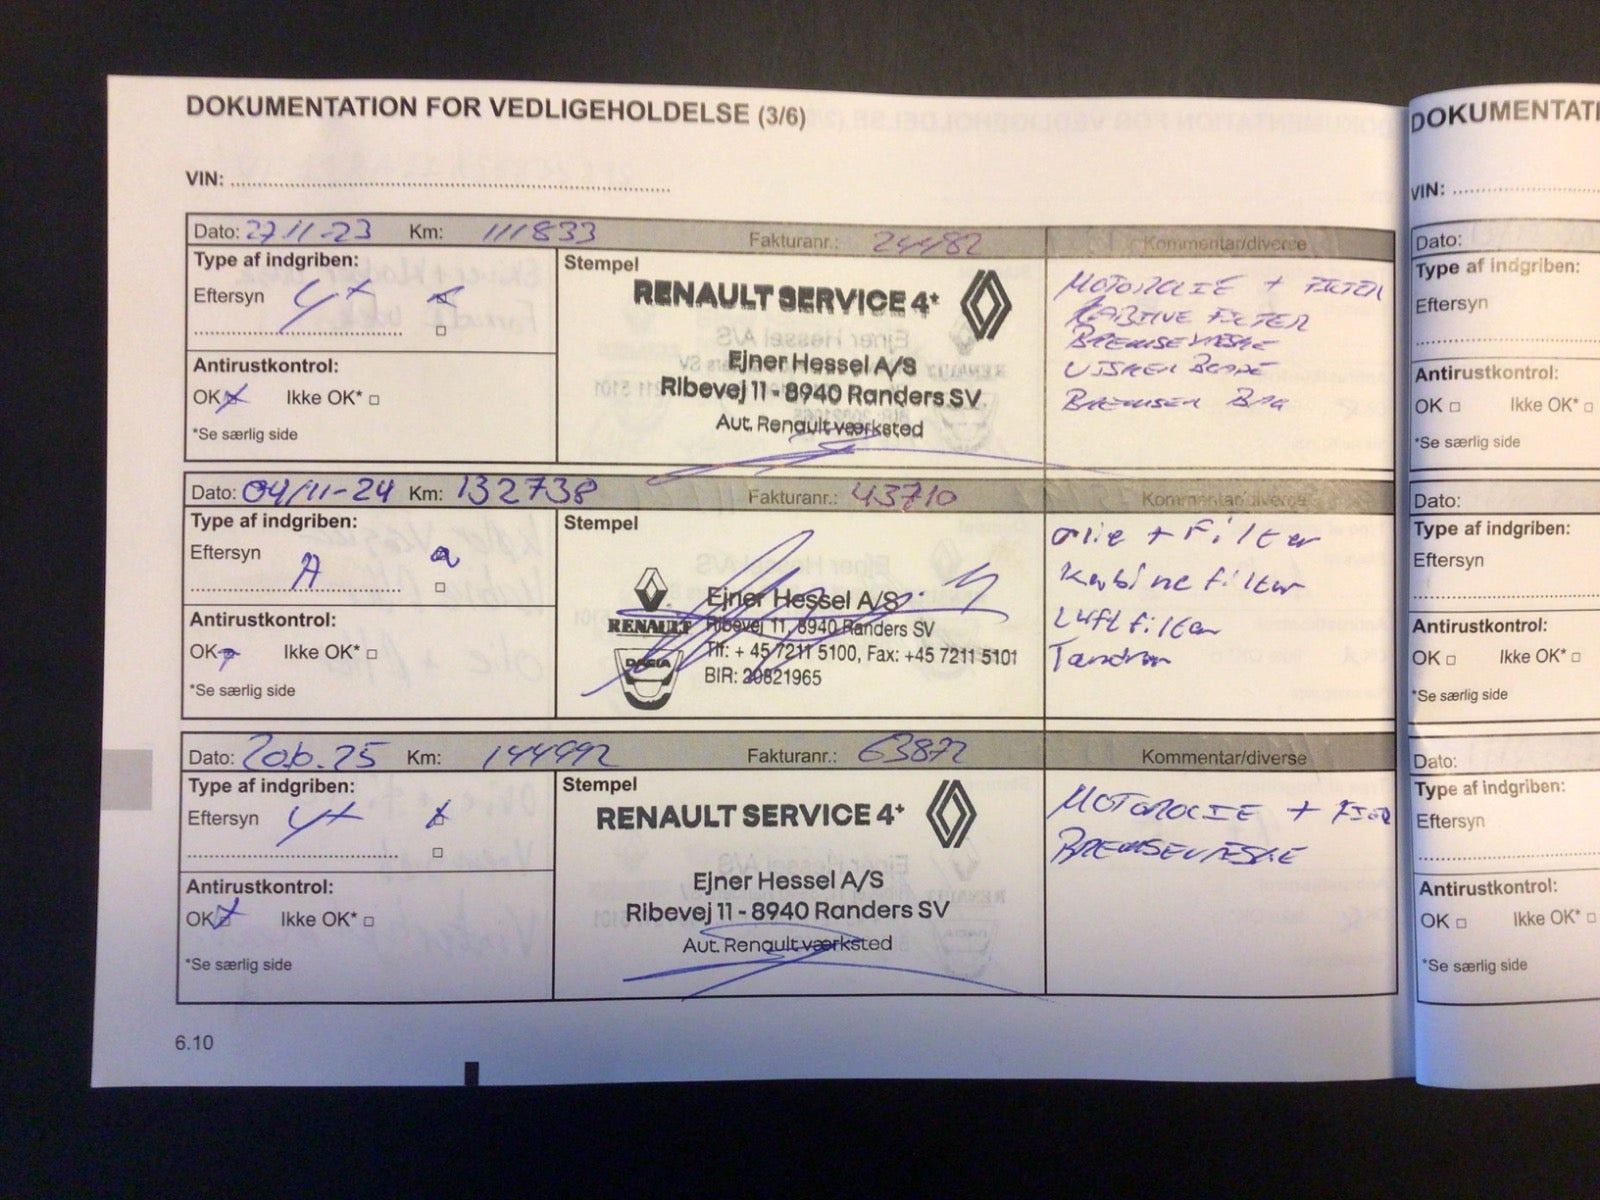 DOKUMENTATION FOR VEDLIGEHOLDELSE (3/6)
VIN:
Dato: 27.11-23 Km: 111833 Fakturanr.: 24482 Kommentar/diverse
Type af indgriben:
Eftersyn 4+
Antirustkontrol:
OK Ikke OK*
*Se særlig side
Stempel
RENAULT SERVICE 4+
Ejner Hessel A/S
Ribevej 11 - 8940 Randers SV
Aut. Renault værksted
MOTOROLIE + FILTER
KABINE FILTER
BREMSEVÆSKE
VISKER BLADE
BREMSER BAG
Dato: 04/11-24 Km: 132738 Fakturanr.: 43710 Kommentar/diverse
Type af indgriben:
Eftersyn A
Antirustkontrol:
OK Ikke OK*
*Se særlig side
Stempel
RENAULT
DACIA
Ejner Hessel A/S
Ribevej 11, 8940 Randers SV
Tlf: + 45 7211 5100, Fax: +45 7211 5101
BIR: 20821965
olie + Filter
Kabine filter
Luftfilter
Dato: 20.6.25 Km: 144992 Fakturanr.: 63872 Kommentar/diverse
Type af indgriben:
Eftersyn 4+
Antirustkontrol:
OK Ikke OK*
*Se særlig side
Stempel
RENAULT SERVICE 4+
Ejner Hessel A/S
Ribevej 11 - 8940 Randers SV
Aut. Renault værksted
MOTOROLIE +
BREMSEVÆSKE
6.10
DOKUMENTATI
VIN:
Dato:
Type af indgriben:
Eftersyn
Antirustkontrol:
OK Ikke OK*
*Se særlig side
Dato:
Type af indgriben:
Eftersyn
Antirustkontrol:
OK Ikke OK*
*Se særlig side
Dato:
Type af indgriben:
Eftersyn
Antirustkontrol:
OK Ikke OK*
*Se særlig side